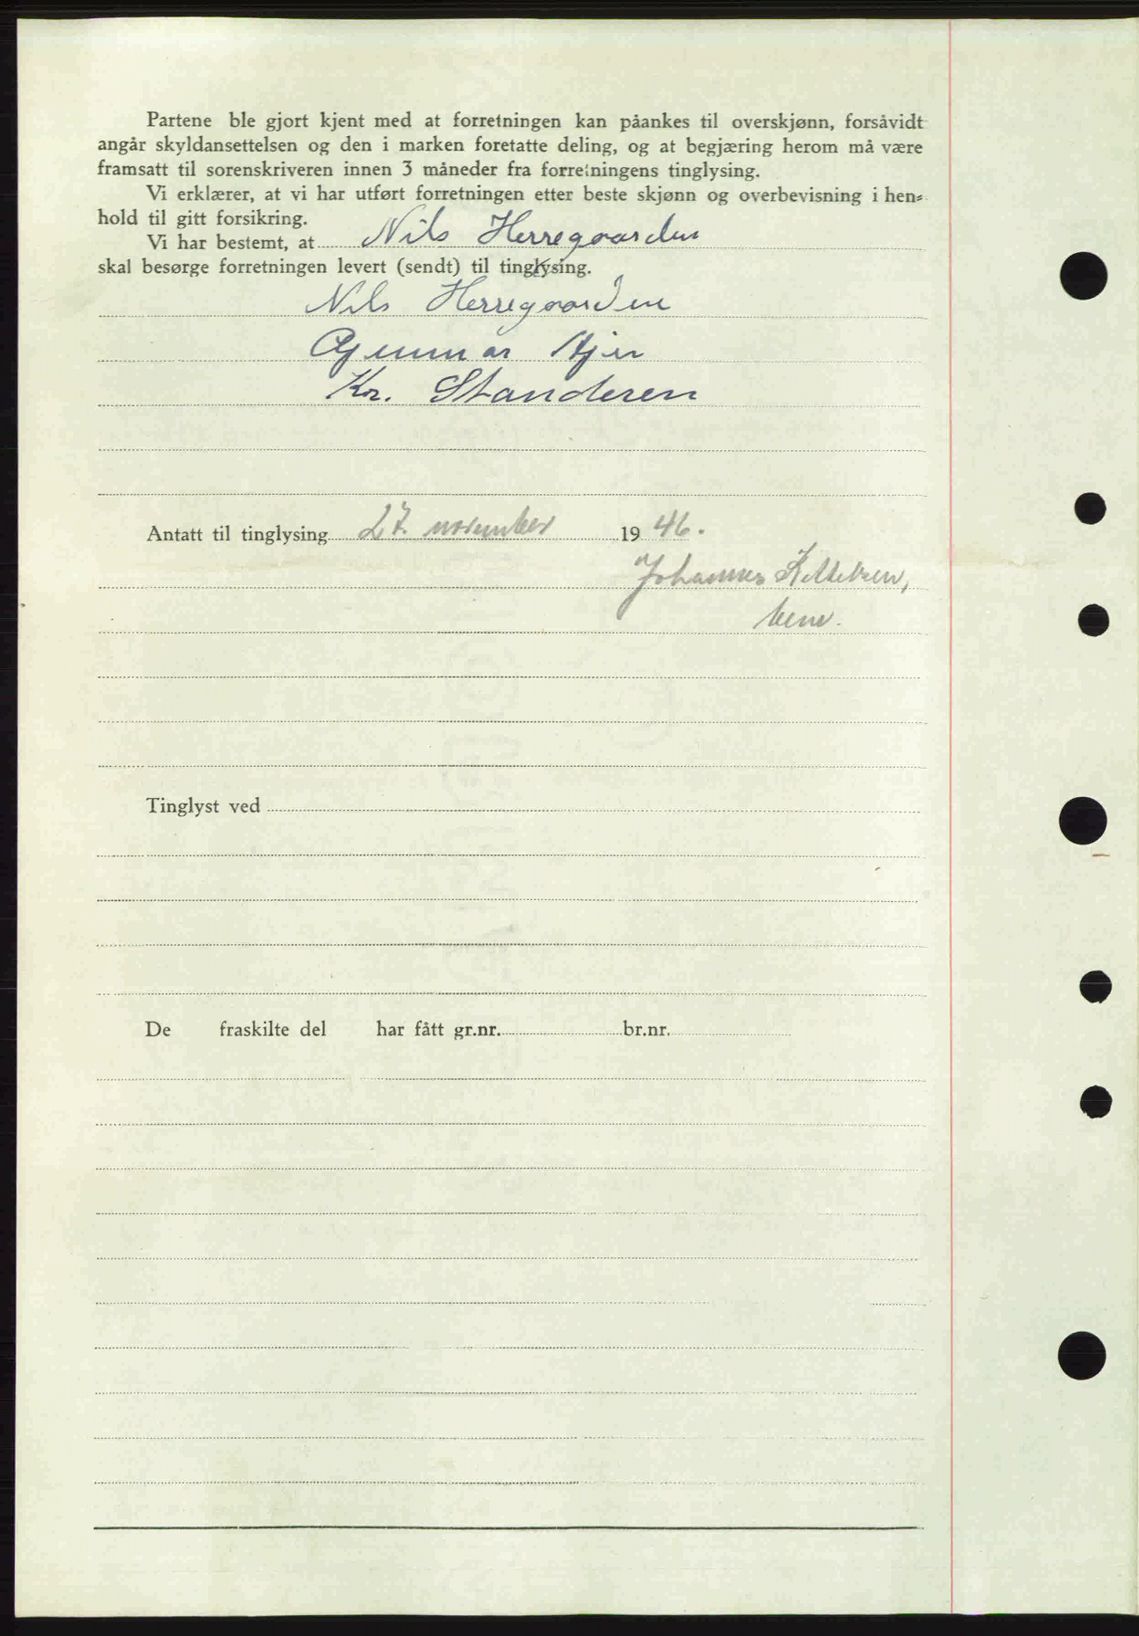 Partene ble gjort kjent med at forretningen kan påankes til overskjønn, forsåvidt
angår skyldansettelsen og den i marken foretatte deling, og at begjæring herom må være
framsatt til sorenskriveren innen 3 måneder fra forretningens tinglysing.
Vi erklærer, at vi har utført forretningen etter beste skjønn og overbevisning i hen-
hold til gitt forsikring.
Vi har bestemt, at Nils Herregaarden
skal besørge forretningen levert (sendt) til tinglysing.
Nils Herregaarden
Kr. Standeren
Antatt til tinglysing 27. november 1946.
Johannes Kittelsen,
Tinglyst ved
De fraskilte del har fått gr.nr. br.nr.